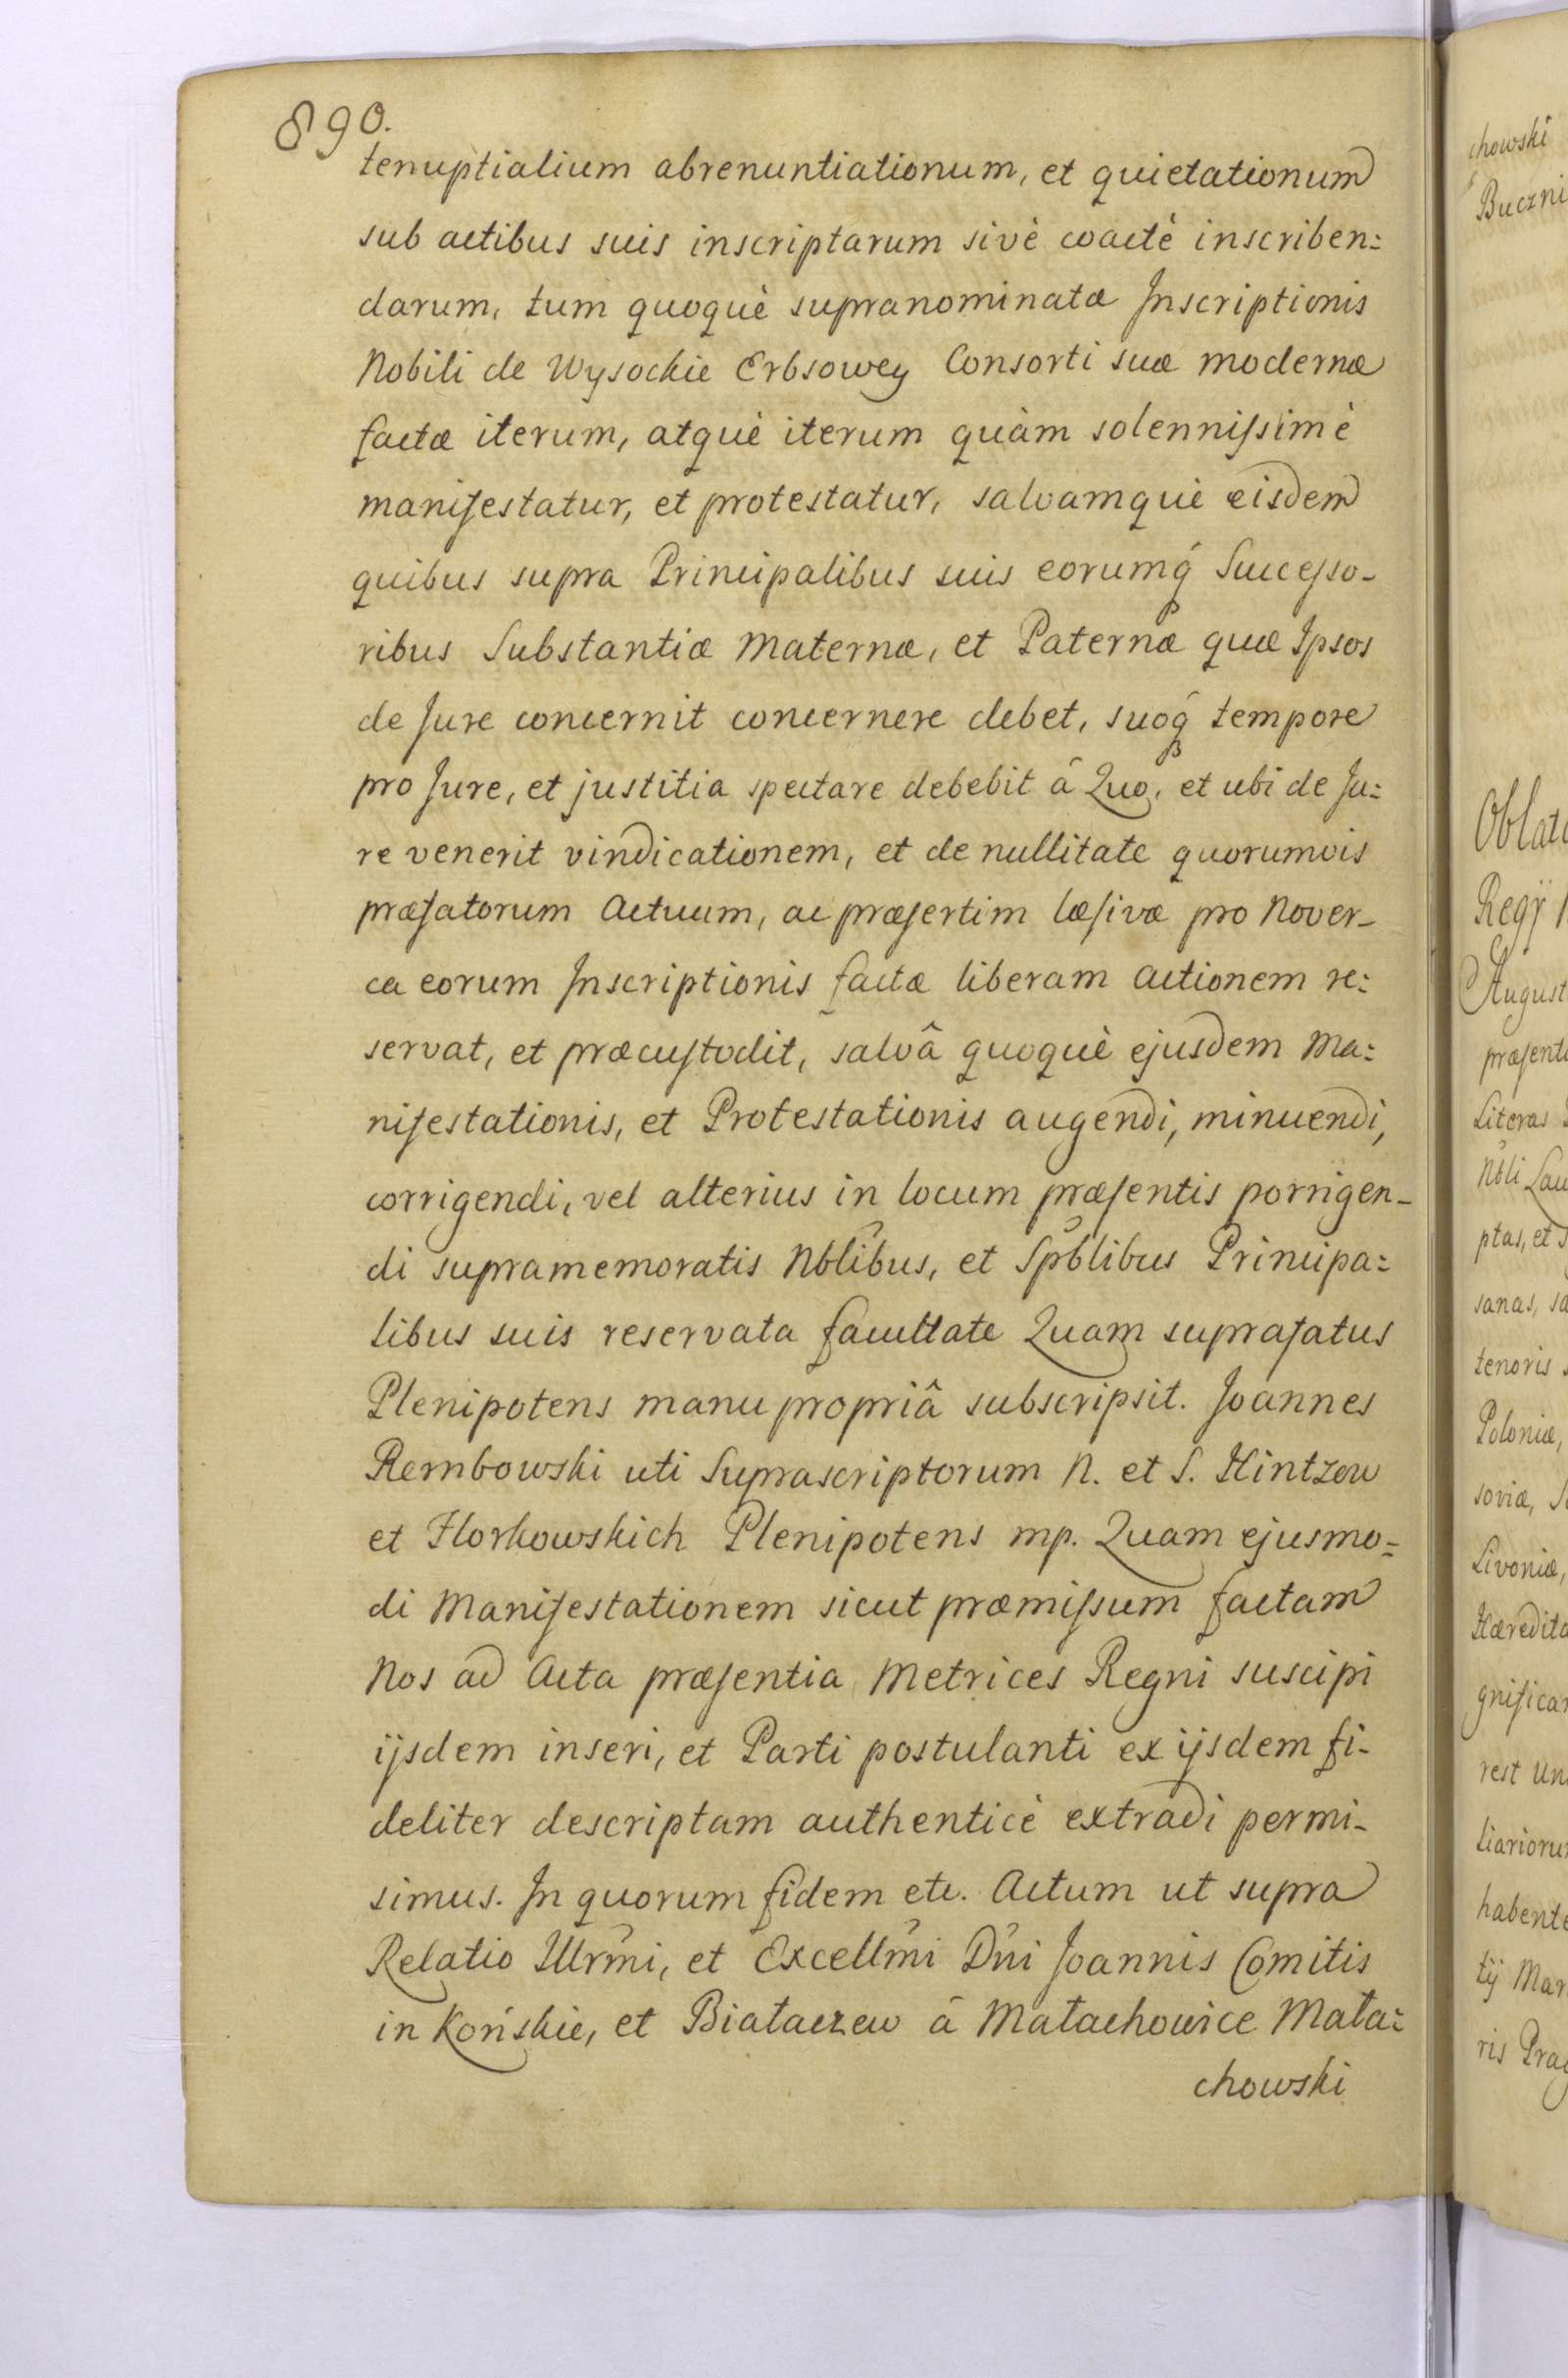 890.
tenuptialium abrenuntiationum, et quietationum
sub actibus suis inscriptarum sivè coactè inscriben=
darum, tum quoquè supranominatæ Inscriptionis
Nobili de Wysockie Erbsowey Consorti suæ modernæ
factæ iterum, atquè iterum quàm solennissimè
manifestatur, et protestatur, salvamquè eisdem
quibus supra Principalibus suis eorumq́ Successo-
ribus Substantiæ Maternæ, et Paternæ quæ Ipsos
de Jure concernit concernere debet, suoq́ tempore
pro Jure, et justitia spectare debebit â Quo, et ubi de Ju=
re venerit vindicationem, et de nullitate quorumvis
præfatorum Actuum, ac præsertim læsivæ pro Nover-
ca eorum Inscriptionis factæ liberam Actionem re=
servat, et præcustodit, salvâ quoquè ejusdem Ma=
nifestationis, et Protestationis augendi, minuendi,
corrigendi, vel alterius in locum præsentis porrigen-
di supramemoratis Nb̃libus, et Spb̃libus Principa=
libus suis reservata facultate Quam suprafatus
Plenipotens manu propriâ subscripsit. Joannes
Rembowski uti Suprascriptorum N. et S. Hintzow
et Horkowskich Plenipotens mp. Quam ejusmo=
di Manifestationem sicut præmissum factam
Nos ad Acta præsentia Metrices Regni suscipi
ijsdem inseri, et Parti postulanti ex ijsdem fi-
deliter descriptam authenticè extradi permi-
simus. In quorum fidem etc. Actum ut supra
Relatio Illrm̃i, et Excellm̃i Dñi Joannis Comitis
in Końskie, et Białaczew â Małachowice Mała=
chowski
chowski
Buczni
Oblat
Regÿ
August
præsent
Literas
Nb̃li Lau
ptas, et
sanas, sa
tenoris
Poloniæ,
soviæ, S
Livoniæ,
Hæredita
gnifica
rest Un
liarioru
habente
tij Mar
ris Prag